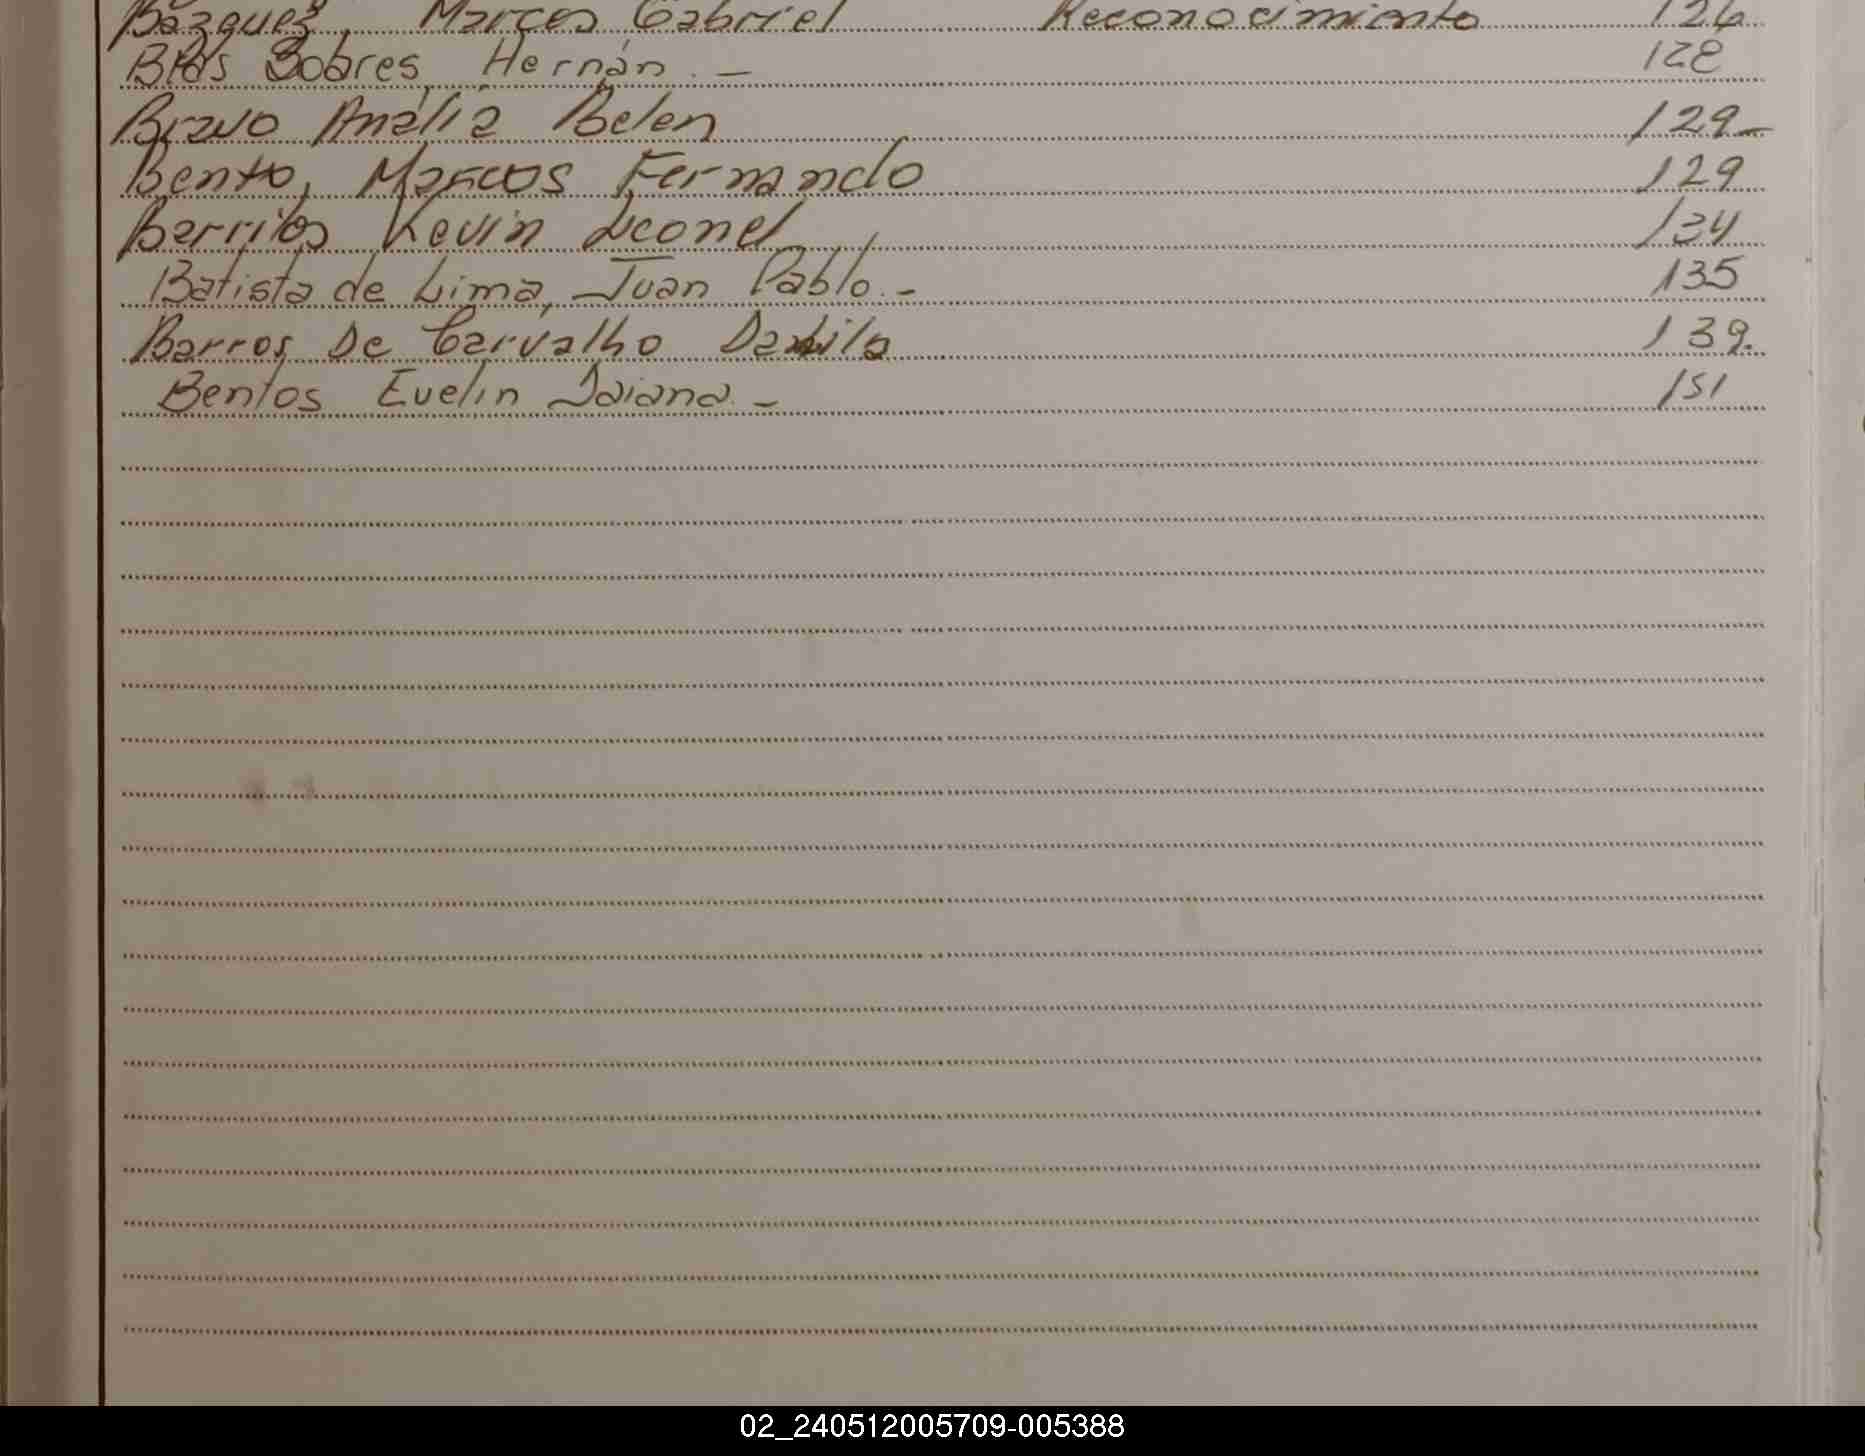 Bazquez, Marcos Gabriel Reconocimiento 126
Blas Sobares, Hernán.- 128
Bravo Analía Belen 129-
Bento, Marcos Fernando 129
Berrilos Kevin Leonel 134
Batista de Lima, Juan Pablo.- 135
Barros De Carvalho Danila 139.
Bentos Evelin Daiana.- 151
02_240512005709-005388